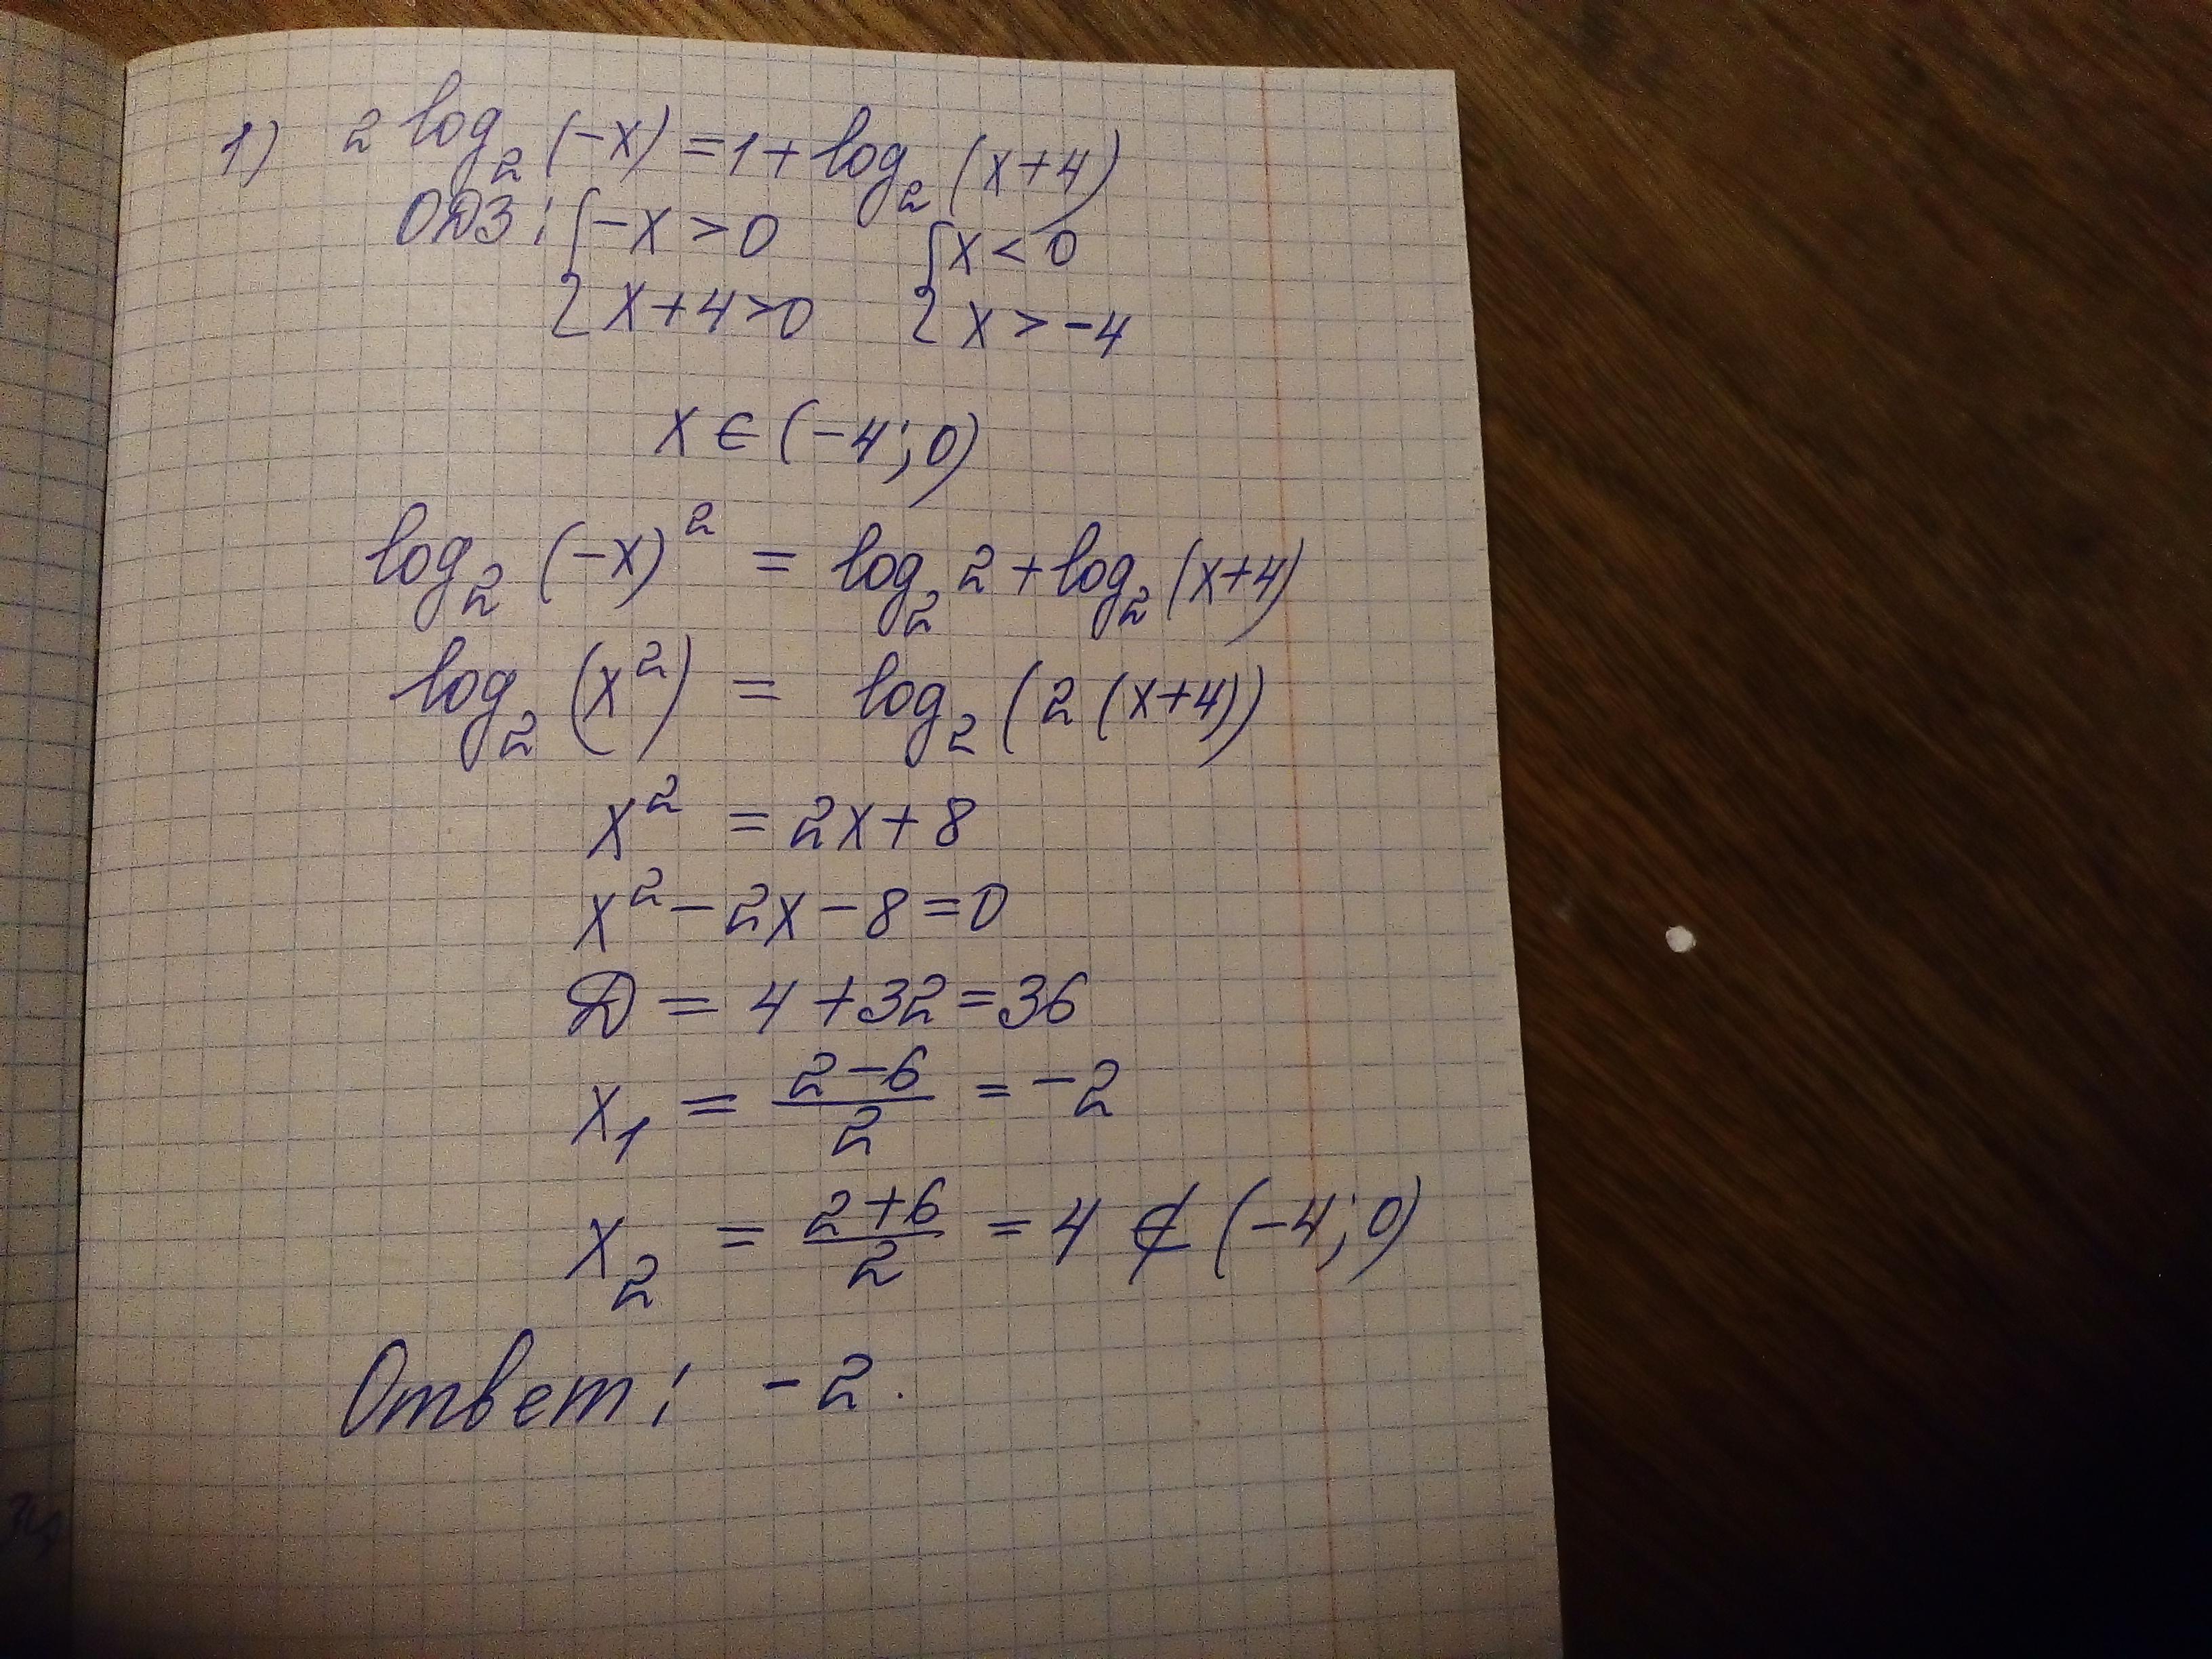 1) 2 log₂ (-x) = 1 + log₂ (x+4)
ОДЗ: { -x > 0 { x < 0
{ x+4>0 { x > -4
x ∈ (-4; 0)
log₂ (-x)² = log₂ 2 + log₂ (x+4)
log₂ (x²) = log₂ (2 (x+4))
x² = 2x + 8
x² - 2x - 8 = 0
D = 4 + 32 = 36
x₁ = (2-6)/2 = -2
x₂ = (2+6)/2 = 4 ∉ (-4; 0)
Ответ: -2.